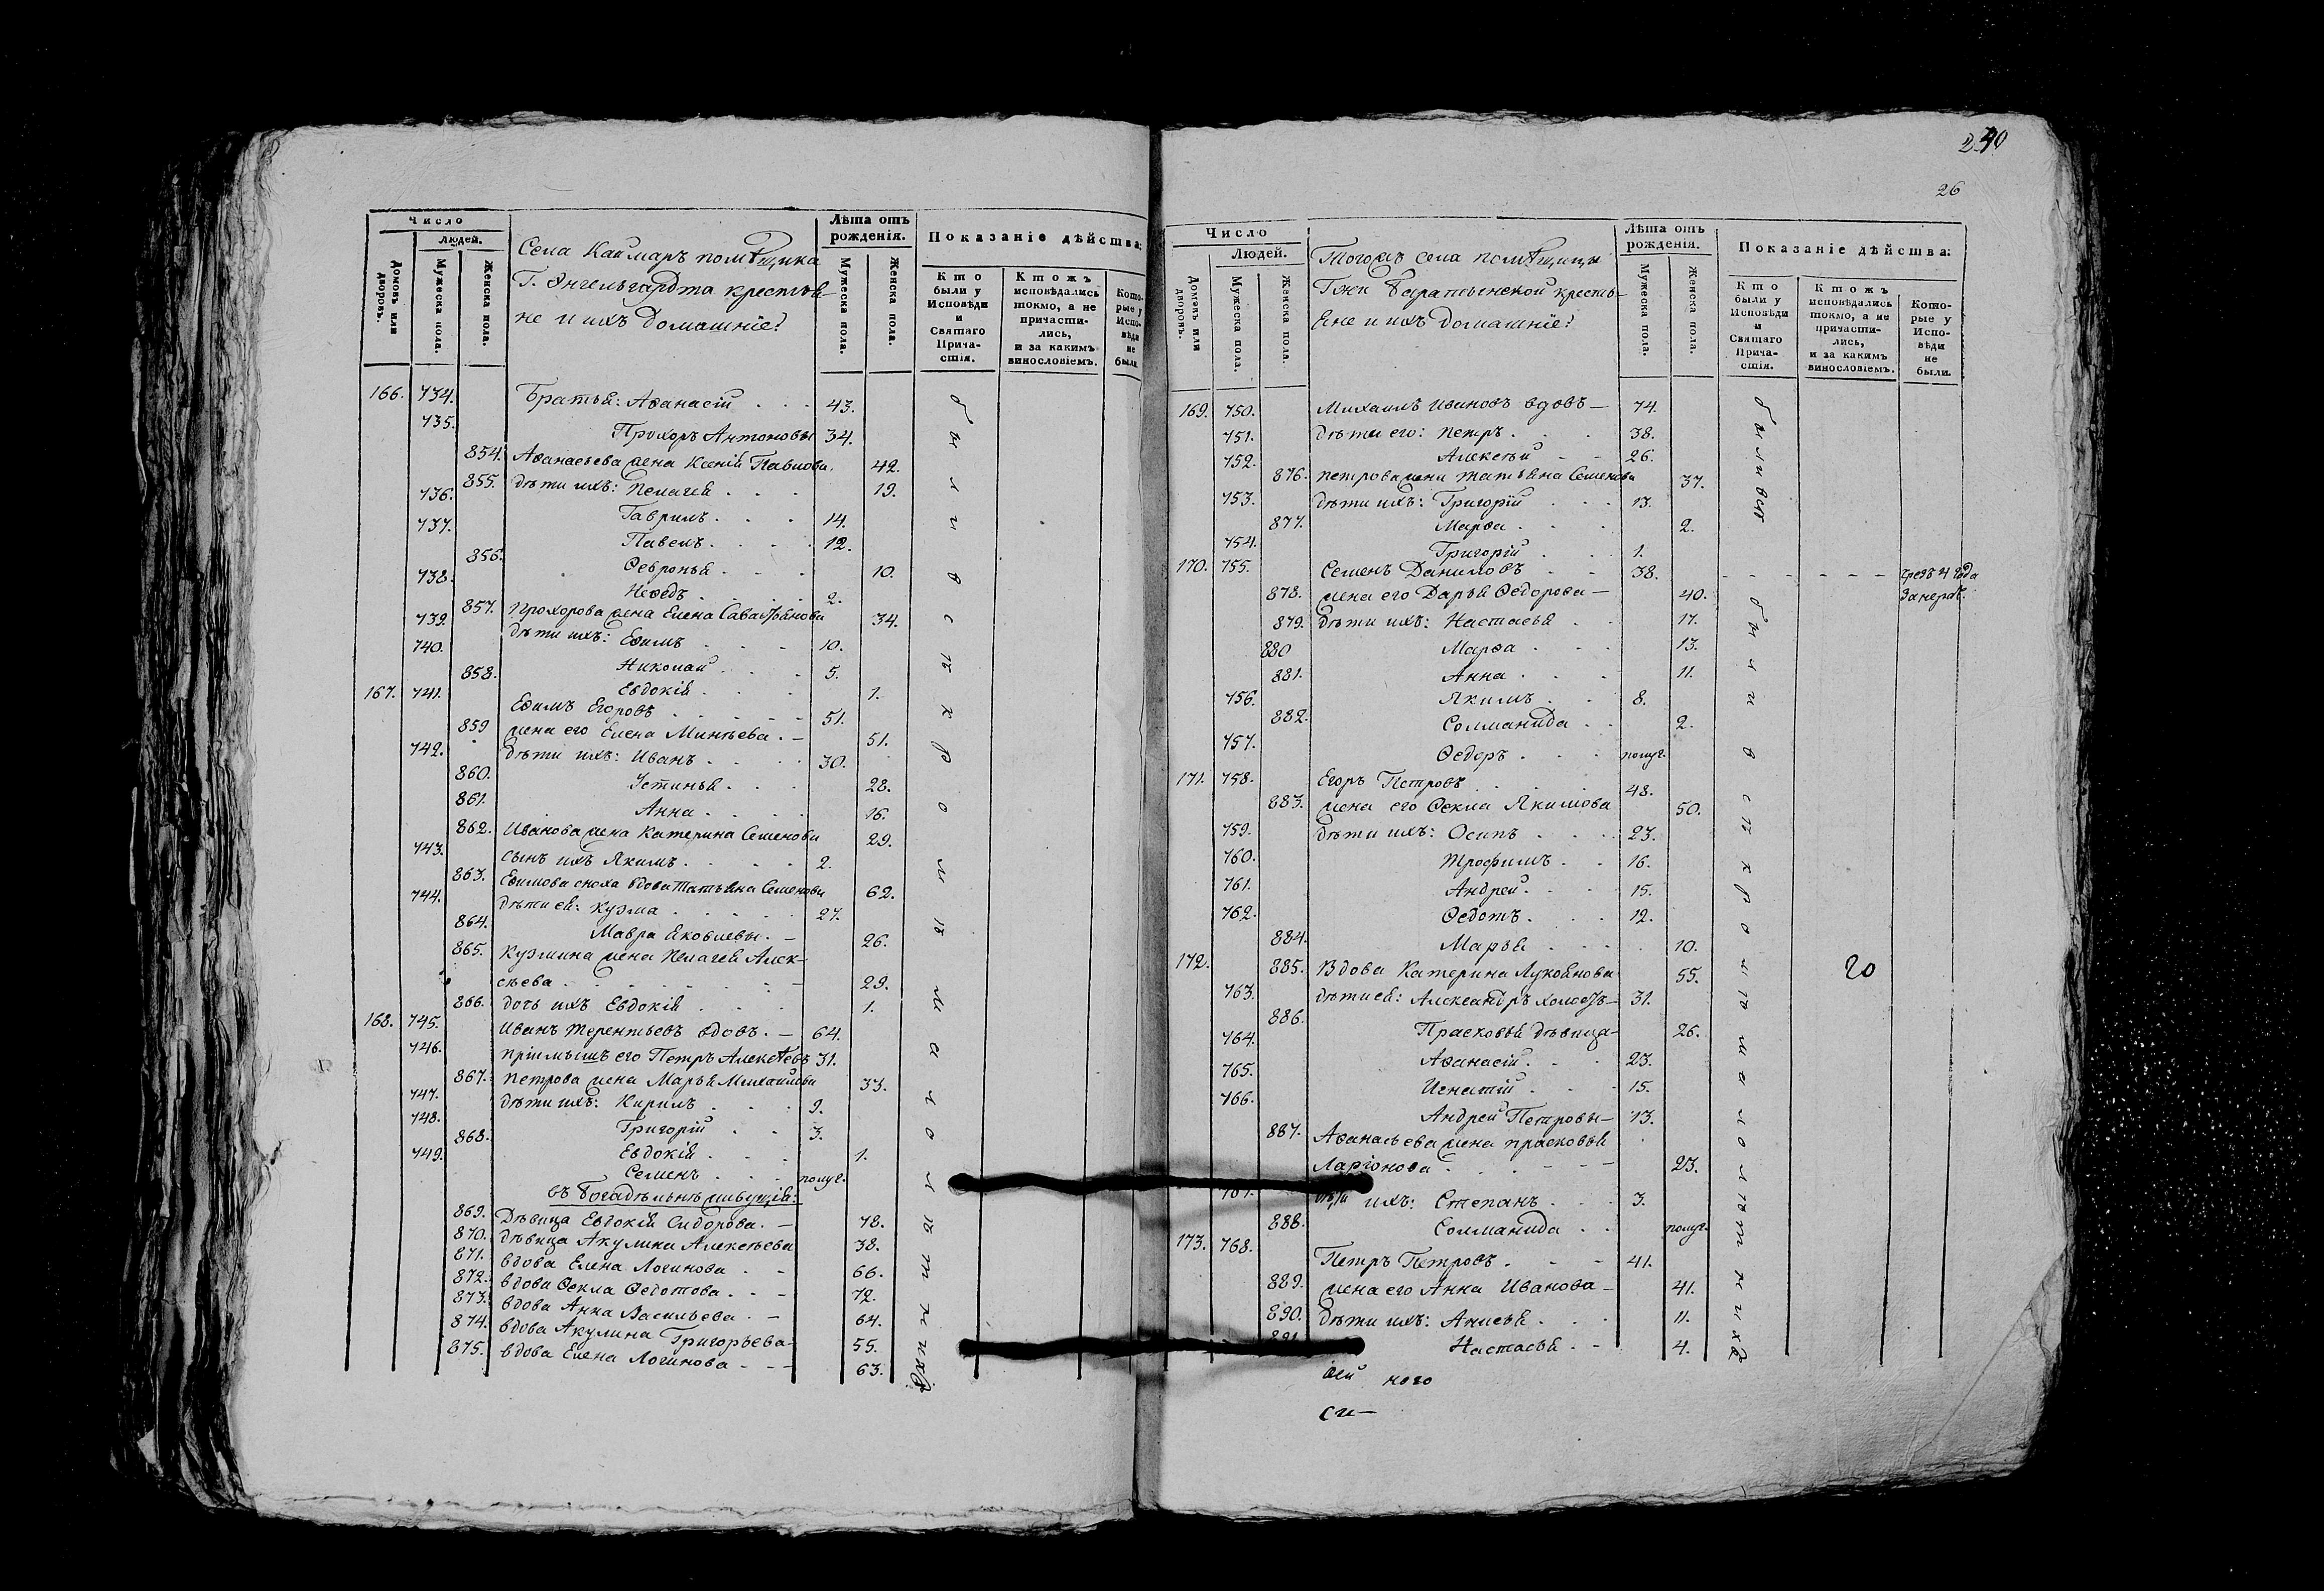 Число
Людей.
Домовъ или дворовъ.
Мужеска пола.
Женска пола.
Села Каймаръ помѣщика
Г. Энгельгардта крестья-
не и ихъ домашнїе:
Лѣта отъ рожденїя.
Мужеска пола.
Женска пола.
Показанїе дѣйства:
Кто были у Исповѣди и Святаго Причастїя.
Ктожъ исповѣдались токмо, а не причастились, и за какимъ винословїемъ.
Которые у Исповѣди не были.
166. 734. Братья: Аѳанасїй . . . 43.
735. Прохоръ Антоновы 34.
854. Аѳанасьева жена Ксенїя Павлова. 42.
855. дѣти ихъ: Пелагея . . . 19.
736. Гаврилъ . . . 14.
737. Павелъ . . . 12.
856. Ѳевронья . . . 10.
738. Неѳедъ . . . 2.
857. Прохорова жена Елена Савастьянова 34.
739. дѣти ихъ: Еѳимъ . . . 10.
740. Николай . . . 5.
858. Евдокїя . . . 1.
167. 741. Еѳимъ Егоровъ . . . 51.
859 жена его Елена Минѣева . – 51.
742. дѣти ихъ: Иванъ . . . 30.
860. Устинья . . . 28.
861. Анна . . . 16.
862. Иванова жена Катерина Семенова 29.
743. сынъ ихъ Якимъ . . . 2.
863. Еѳимова сноха вдова Татьяна Семенова 62.
744. дѣти ея: Кузма . . . 27.
864. Мавра Яковлевы. – 26.
865. Кузмина жена Пелагея Алек-
сѣева . . . – 29.
866. дочь ихъ Евдокїя . . . 1.
168. 745. Иванъ Терентьевъ вдовъ. – 64.
746. прїимышъ его Петръ Алексѣевъ 31.
867. Петрова жена Марья Михайлова 33.
747. дѣти ихъ: Кирилъ . . . 9.
748. Григорїй . . . 3.
868. Евдокїя . . . 1.
749. Семенъ . . . полуг.
въ богадѣльнѣ живущїя:
869. Дѣвица Евдокїя Сидорова. – 78.
870. дѣвица Акулина Алексѣева 38.
871. вдова Елена Логинова . – 66.
872. вдова Ѳекла Ѳедотова . . – 72.
873. вдова Анна Васильева . – 64.
874. вдова Акулина Григорьева 55.
875. вдова Елена Логинова – – – 63.
были в с ѣ х ро м ѣ м а л о л ѣ т н и хъ
240
26
Число
Людей.
Домовъ или дворовъ.
Мужеска пола.
Женска пола.
Тогожъ села помѣщицы
Гжи Баратынской кресть-
яне и ихъ домашнїе:
Лѣта отъ рожденїя.
Мужеска пола.
Женска пола.
Показанїе дѣйства:
Кто были у Исповѣди и Святаго Причастїя.
Ктожъ исповѣдались токмо, а не причастились, и за какимъ винословїемъ.
Которые у Исповѣди не были.
169. 750. Михаилъ Ивановъ вдовъ – 74.
751. дѣти его: Петръ . . . 38.
752. Алексѣй – – 26.
876. Петрова жена Татьяна Семенова 37.
753. дѣти ихъ: Григорїй . . . 13.
877. Марѳа . . . 2.
754. Григорїй . . . 1.
170. 755. Семенъ Даниловъ . – 38. – – – – – – чрезъ 4 года
878. жена его Дарья Ѳедорова – 40.
879. дѣти ихъ: Настасья . . 17.
880 Марѳа . . . 13.
881. Анна . . . 11.
756. Якимъ . . 8.
882. Соломанида . . 2.
757. Ѳедоръ . . . полуг.
171. 758. Егоръ Петровъ . . . 48.
883. жена его Ѳекла Якимова 50.
759. дѣти ихъ: Осипъ . . . 23.
760. Трофимъ . . 16.
761. Андрей . . . 15.
762. Ѳедотъ . . . 12.
884. Марья . . . 10.
172. 885. Вдова Катерина Лукоянова 55.
763. дѣти ея: Александръ холостъ – 31.
886. Прасковья дѣвица – 26.
764. Аѳанасїй . . . 23.
765. Игнатїй . . . 15.
766. Андрей Петровы – 13.
887. Аѳанасьева жена Прасковья
Ларїонова . . . – – – 23.
767. дѣти ихъ: Степанъ . . . 3.
888. Соломанида . . полуг.
173. 768. Петръ Петровъ . – – 41.
889. жена его Анна Иванова – 41.
890. дѣти ихъ: Анисья . . . 11.
891. Настасья . – 4.
20
ного
си –